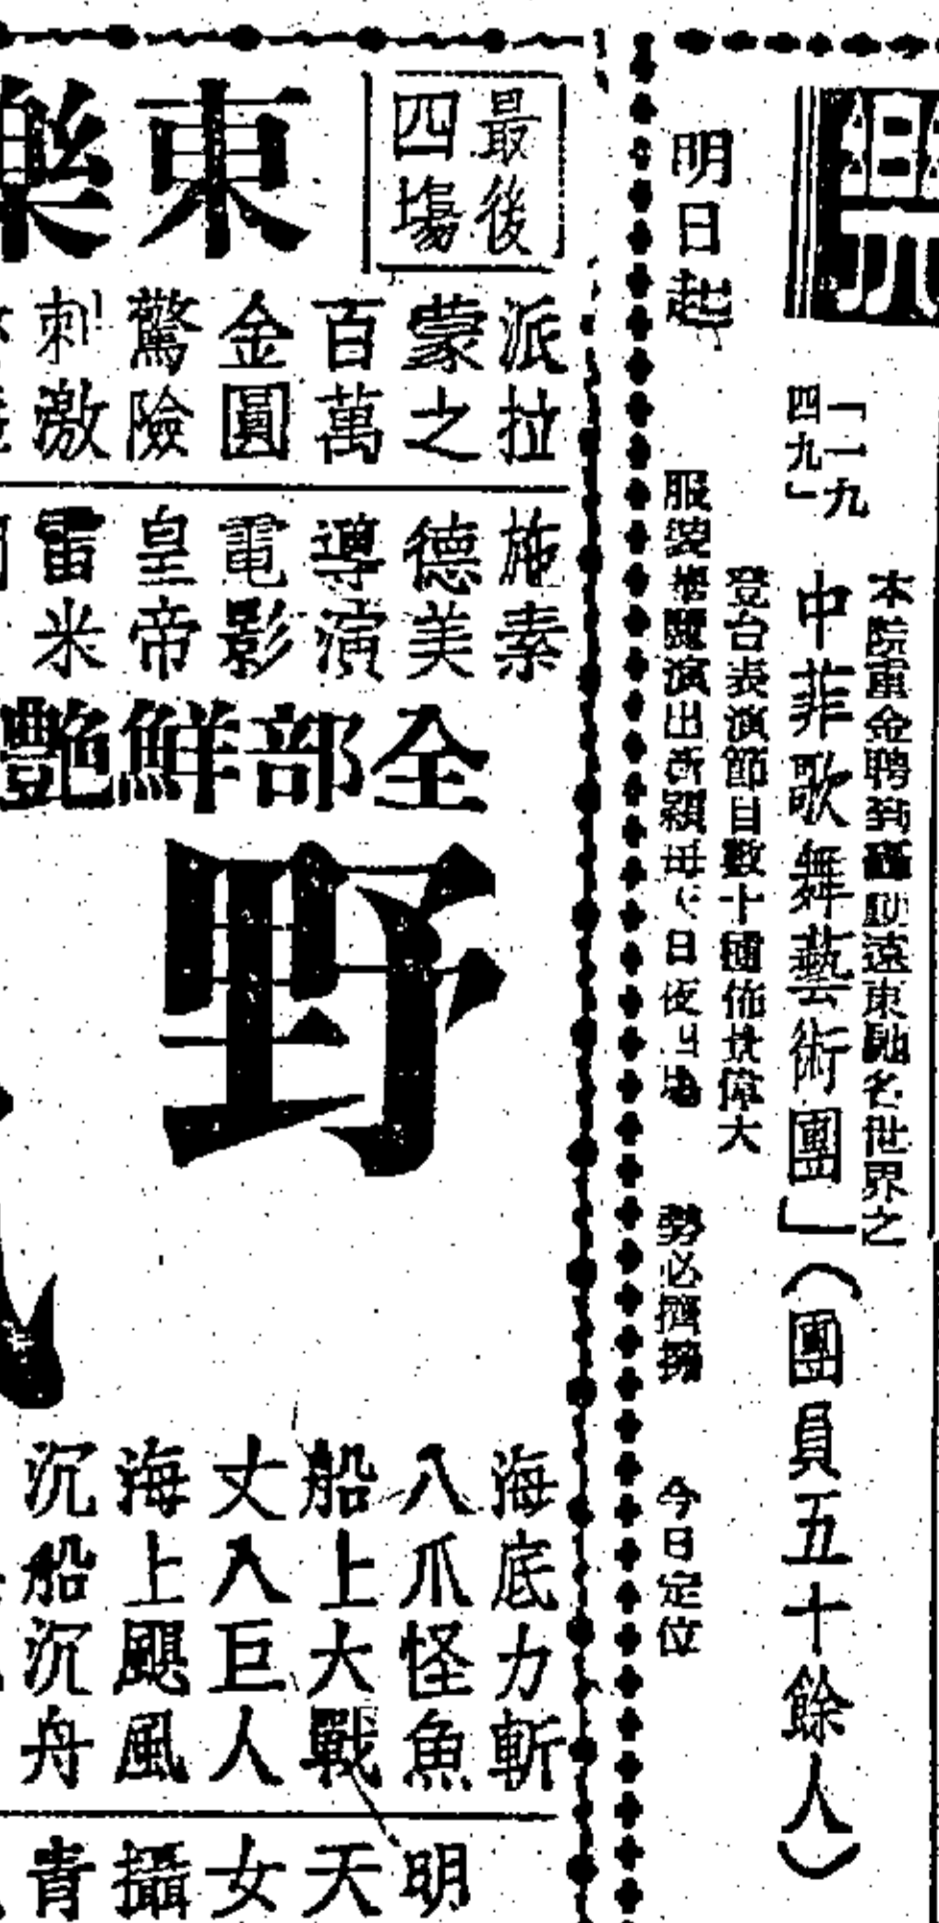 本院重金聘到轟動遠東馳名世界之
「一九四九」
中菲歌舞藝術團」(團員五十餘人)
登台表演節目數十種佈景偉大
明日起
服裝華麗演出新穎每天日夜四場
勢必擠擁
今日定位
最後四場
東樂
派拉
蒙之
百萬
金圓
驚險
刺激
施素
德美
導演
電影
皇帝
雷米
全部鮮艷
野
海底力斬
八爪怪魚
船上大戰
丈八巨人
海上颶風
沉船沉舟
明
天
女
攝
青